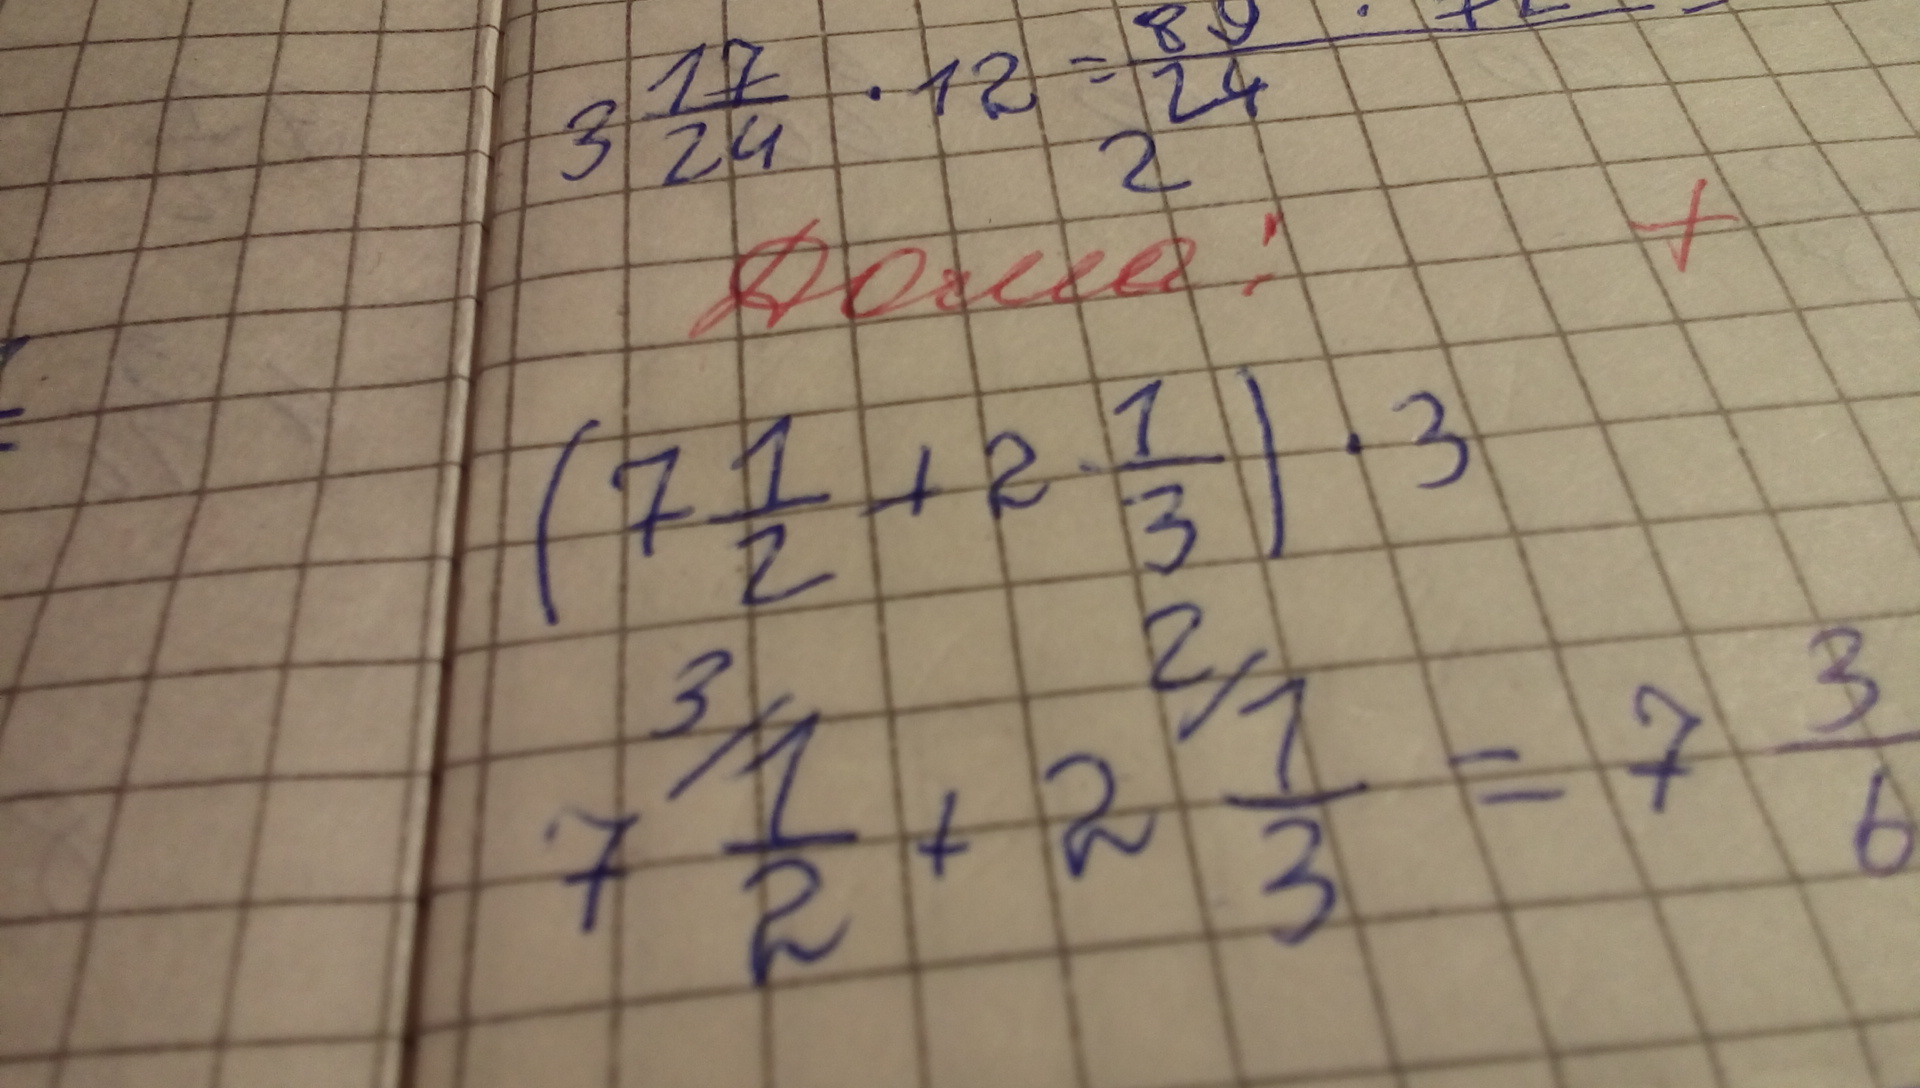 3 17/24 · 12 = 89 · 12/24
2
Дома:
+
(7 1/2 + 2 · 1/3) · 3
7 3/ 1/2 + 2 2/ 1/3 = 7 3/6